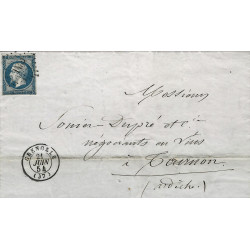 Messieurs
Sonier Dupré et Cie
négociants en Vins
à Tournon
(ardèche)
GRENOBLE
21
JUIN
54
(37)